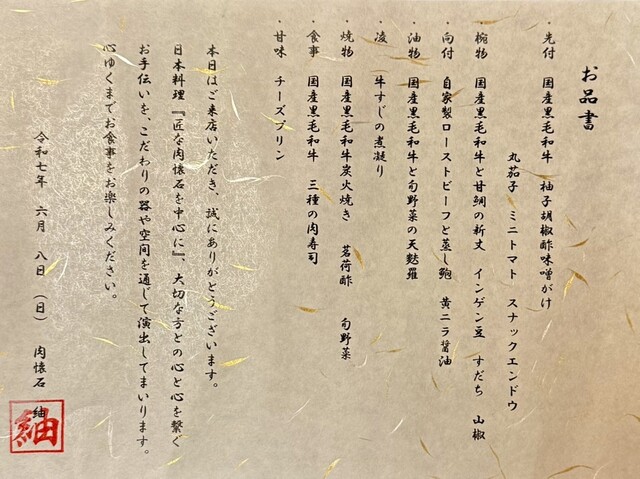 お品書
・先付 国産黒毛和牛 柚子胡椒酢味噌がけ
丸茄子 ミニトマト スナックエンドウ
・椀物 国産黒毛和牛と甘鯛の新丈 インゲン豆 すだち 山椒
・向付 自家製ローストビーフと蒸し鮑 黄ニラ醤油
・油物 国産黒毛和牛と旬野菜の天麩羅
・凌 牛すじの煮凝り
・焼物 国産黒毛和牛炭火焼き 茗荷酢 旬野菜
・食事 国産黒毛和牛 三種の肉寿司
・甘味 チーズプリン
本日はご来店いただき、誠にありがとうございます。
日本料理『匠な肉懐石を中心に』、大切な方との心と心を繋ぐ
お手伝いを、こだわりの器や空間を通じて演出してまいります。
心ゆくまでお食事をお楽しみください。
令和七年 六月 八日 (日) 肉懐石 紬
紬